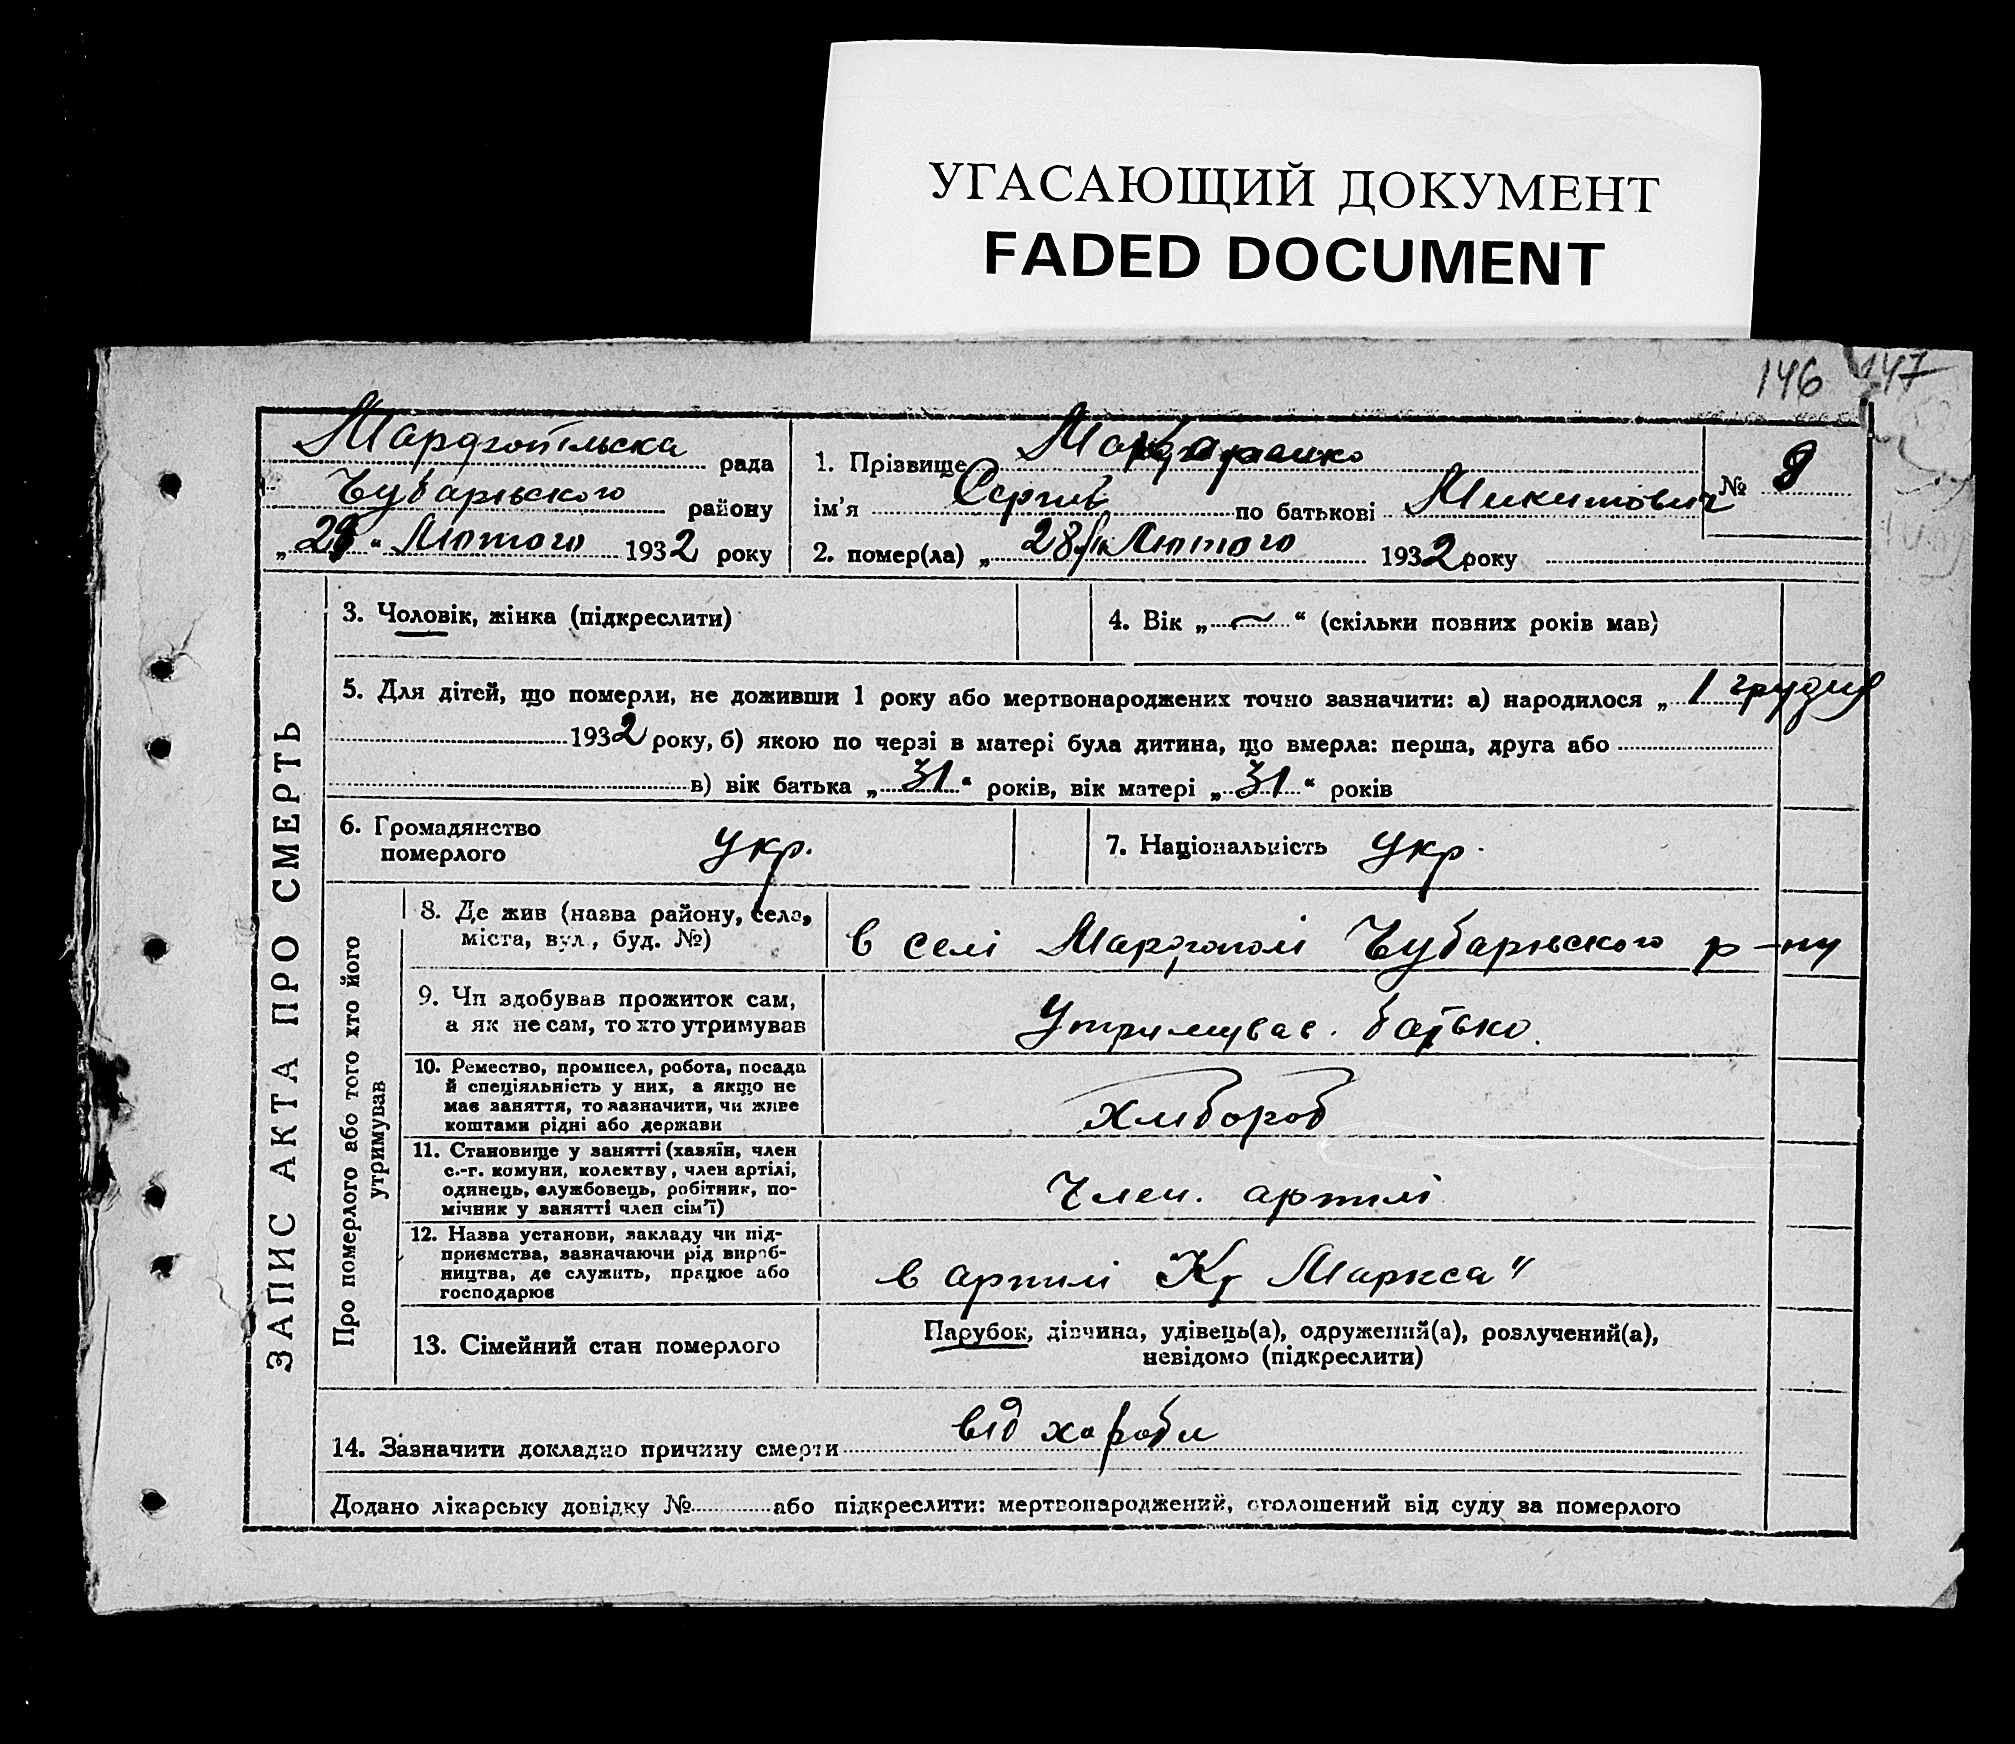 УГАСАЮЩИЙ ДОКУМЕНТ
FADED DOCUMENT
146 147
Марфопільска рада
Чубарьского району
„29“ Лютого 1932 року
1. Прізвище Макаренко
№ 9
ім'я Сергій по батькові Микитович
2. помер(ла) „28го Лютого 1932 року
ЗАПИС АКТА ПРО СМЕРТЬ
3. Чоловік, жінка (підкреслити)
4. Вік „—“ (скільки повних років мав)
5. Для дітей, що померли, не доживши 1 року або мертвонароджених точно зазначити: а) народилося „1 грудня
1932 року, б) якою по черзі в матері була дитина, що вмерла: перша, друга або
в) вік батька „31“ років, вік матері „31“ років
6. Громадянство
померлого укр.
7. Національність укр.
Про померлого або того хто його
утримував
8. Де жив (назва району, села,
міста, вул., буд. №)
в селі Марфополі Чубарьского р-ну
9. Чи здобував прожиток сам,
а як не сам, то хто утримував
Утримував. батько.
10. Ремество, промисел, робота, посада
й спеціяльність у них, а якщо не
має заняття, то зазначити, чи живе
коштами рідні або держави
хлібороб
11. Становище у занятті (хазяїн, член
с.-г. комуни, колектву, член артілі,
одинець, службовець, робітник, по-
мічник у занятті член сім'ї)
Член. артилі
12. Назва установи, закладу чи під-
приємства, зазначаючи рід вироб-
ництва, де служить, працює або
господарює
в артилі "К. Маркса"
13. Сімейний стан померлого
Парубок, дівчина, удівець(а), одружений(а), розлучений(а),
невідомо (підкреслити)
14. Зазначити докладно причину смерти від хароби
Додано лікарську довідку № або підкреслити: мертвонароджений, оголошений від суду за померлого